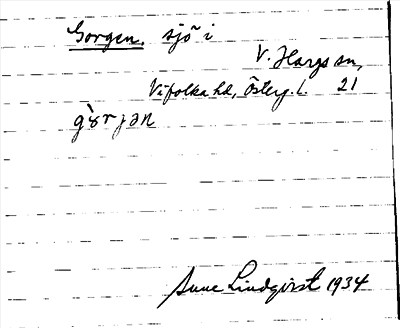 Gorgen, sjö i
V. Hargs sn,
Vifolka hd, Österg. l. 21
gòrjən
Sune Lindqvist 1934